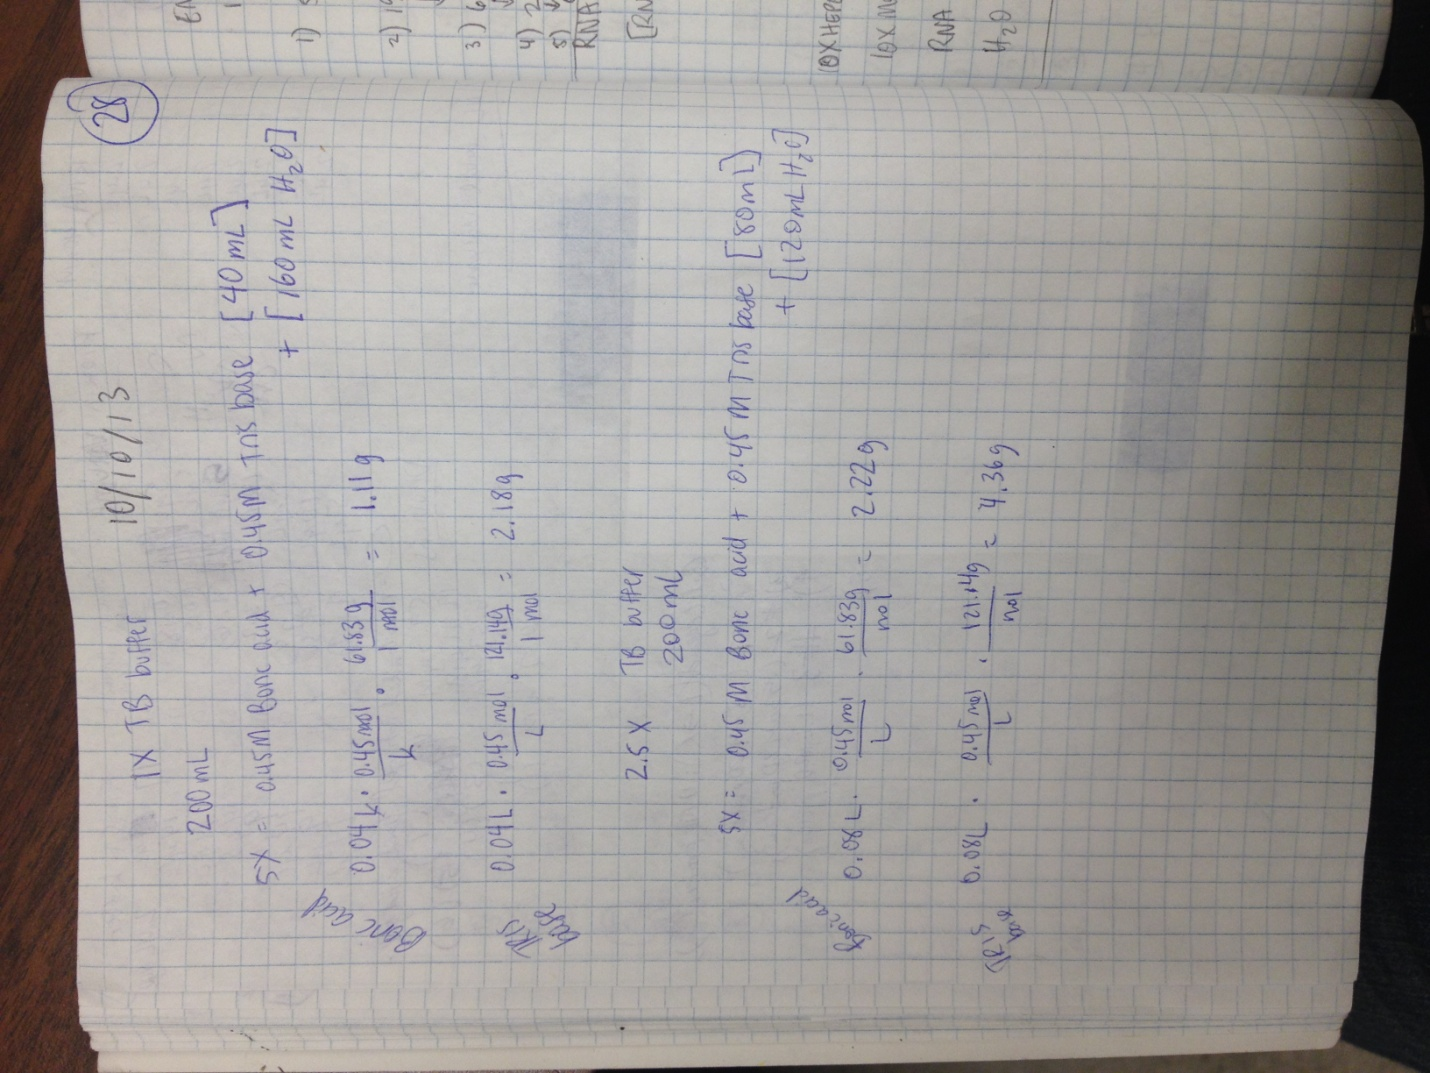 28
10/10/13
1X TB buffer
200mL
5X = 0.45M Boric acid + 0.45M Tris base [40mL]
+ [160mL H2O]
Boric acid
0.04L · 0.45mol/L · 61.83g/1 mol = 1.11g
TRIS base
0.04L · 0.45mol/L · 121.14g/1 mol = 2.18g
2.5X TB buffer
200mL
5X = 0.45M Boric acid + 0.45M Tris base [80mL]
+ [120mL H2O]
Boric acid
0.08L · 0.45mol/L · 61.83g/mol = 2.22g
TRIS base
0.08L · 0.45mol/L · 121.14g/mol = 4.36g
1)
2)
3) 6
4) 2
5)
RNA
[RN
10X HEPE
RNA
H2O